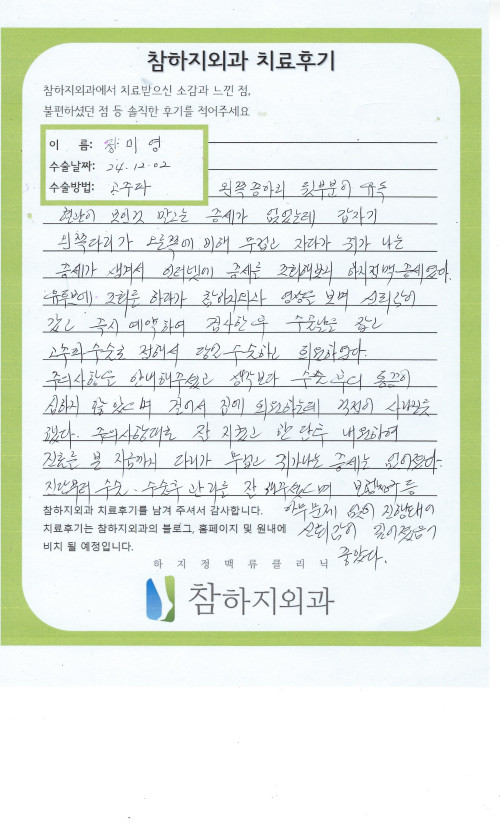 참하지외과 치료후기
참하지외과에서 치료받으신 소감과 느낀 점,
불편하셨던 점 등 솔직한 후기를 적어주세요
이 름: 미영
수술날짜: 24.12.02
수술방법: 고주파
왼쪽종아리 뒷부분이 유독
혈관이 보인것 말고는 증세가 없었는데 갑자기
왼쪽다리가 오른쪽에 비해 무겁고 자다가 쥐가 나는
증세가 생겨서 인터넷에 증세를 조회해보니 하지정맥 증세였다.
유튜브에 조회를 하다가 참하지의사 영상을 보며 신뢰감이
갔고 즉시 예약하여 검사한후 수술날을 잡고
고주파수술로 정해서 당일 수술하고 퇴원하였다.
주의사항을 안내해주셨고 생각보다 수술부위 통증이
심하지 않았으며 걸어서 집에 걱정이
졌다. 주의사항대로 잘 지켰고 한달후 내원하여
진료를 본 지금까지 다리가 무겁고 쥐가나는 증세는 없어졌다.
진단부터 수술·수술후 관리를 잘 해주셨으며 보험청구 등
참하지외과 치료후기를 남겨 주셔서 감사합니다.
아무문제 없이 진행돼어
치료후기는 참하지외과의 블로그, 홈페이지 및 원내에
신뢰감이 깊어졌음이
비치 될 예정입니다.
좋았다.
하지정맥류클리닉
참하지외과